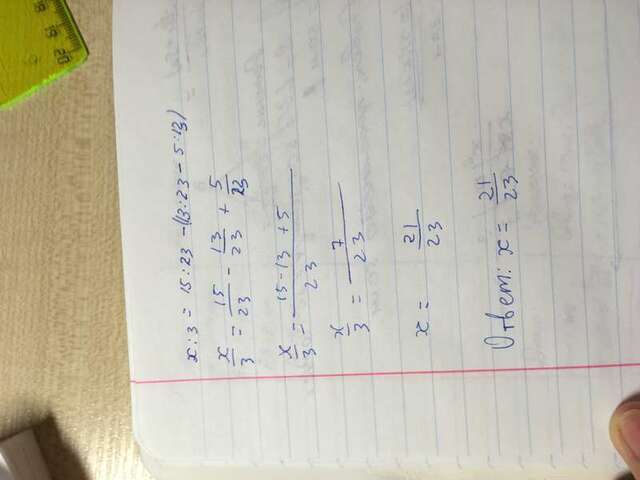 x:3 = 15:23 - (13:23 - 5:13)
x/3 = 15/23 - 13/23 + 5/23
x/3 = 15-13+5/23
x/3 = 7/23
x = 21/23
Ответ: x = 21/23